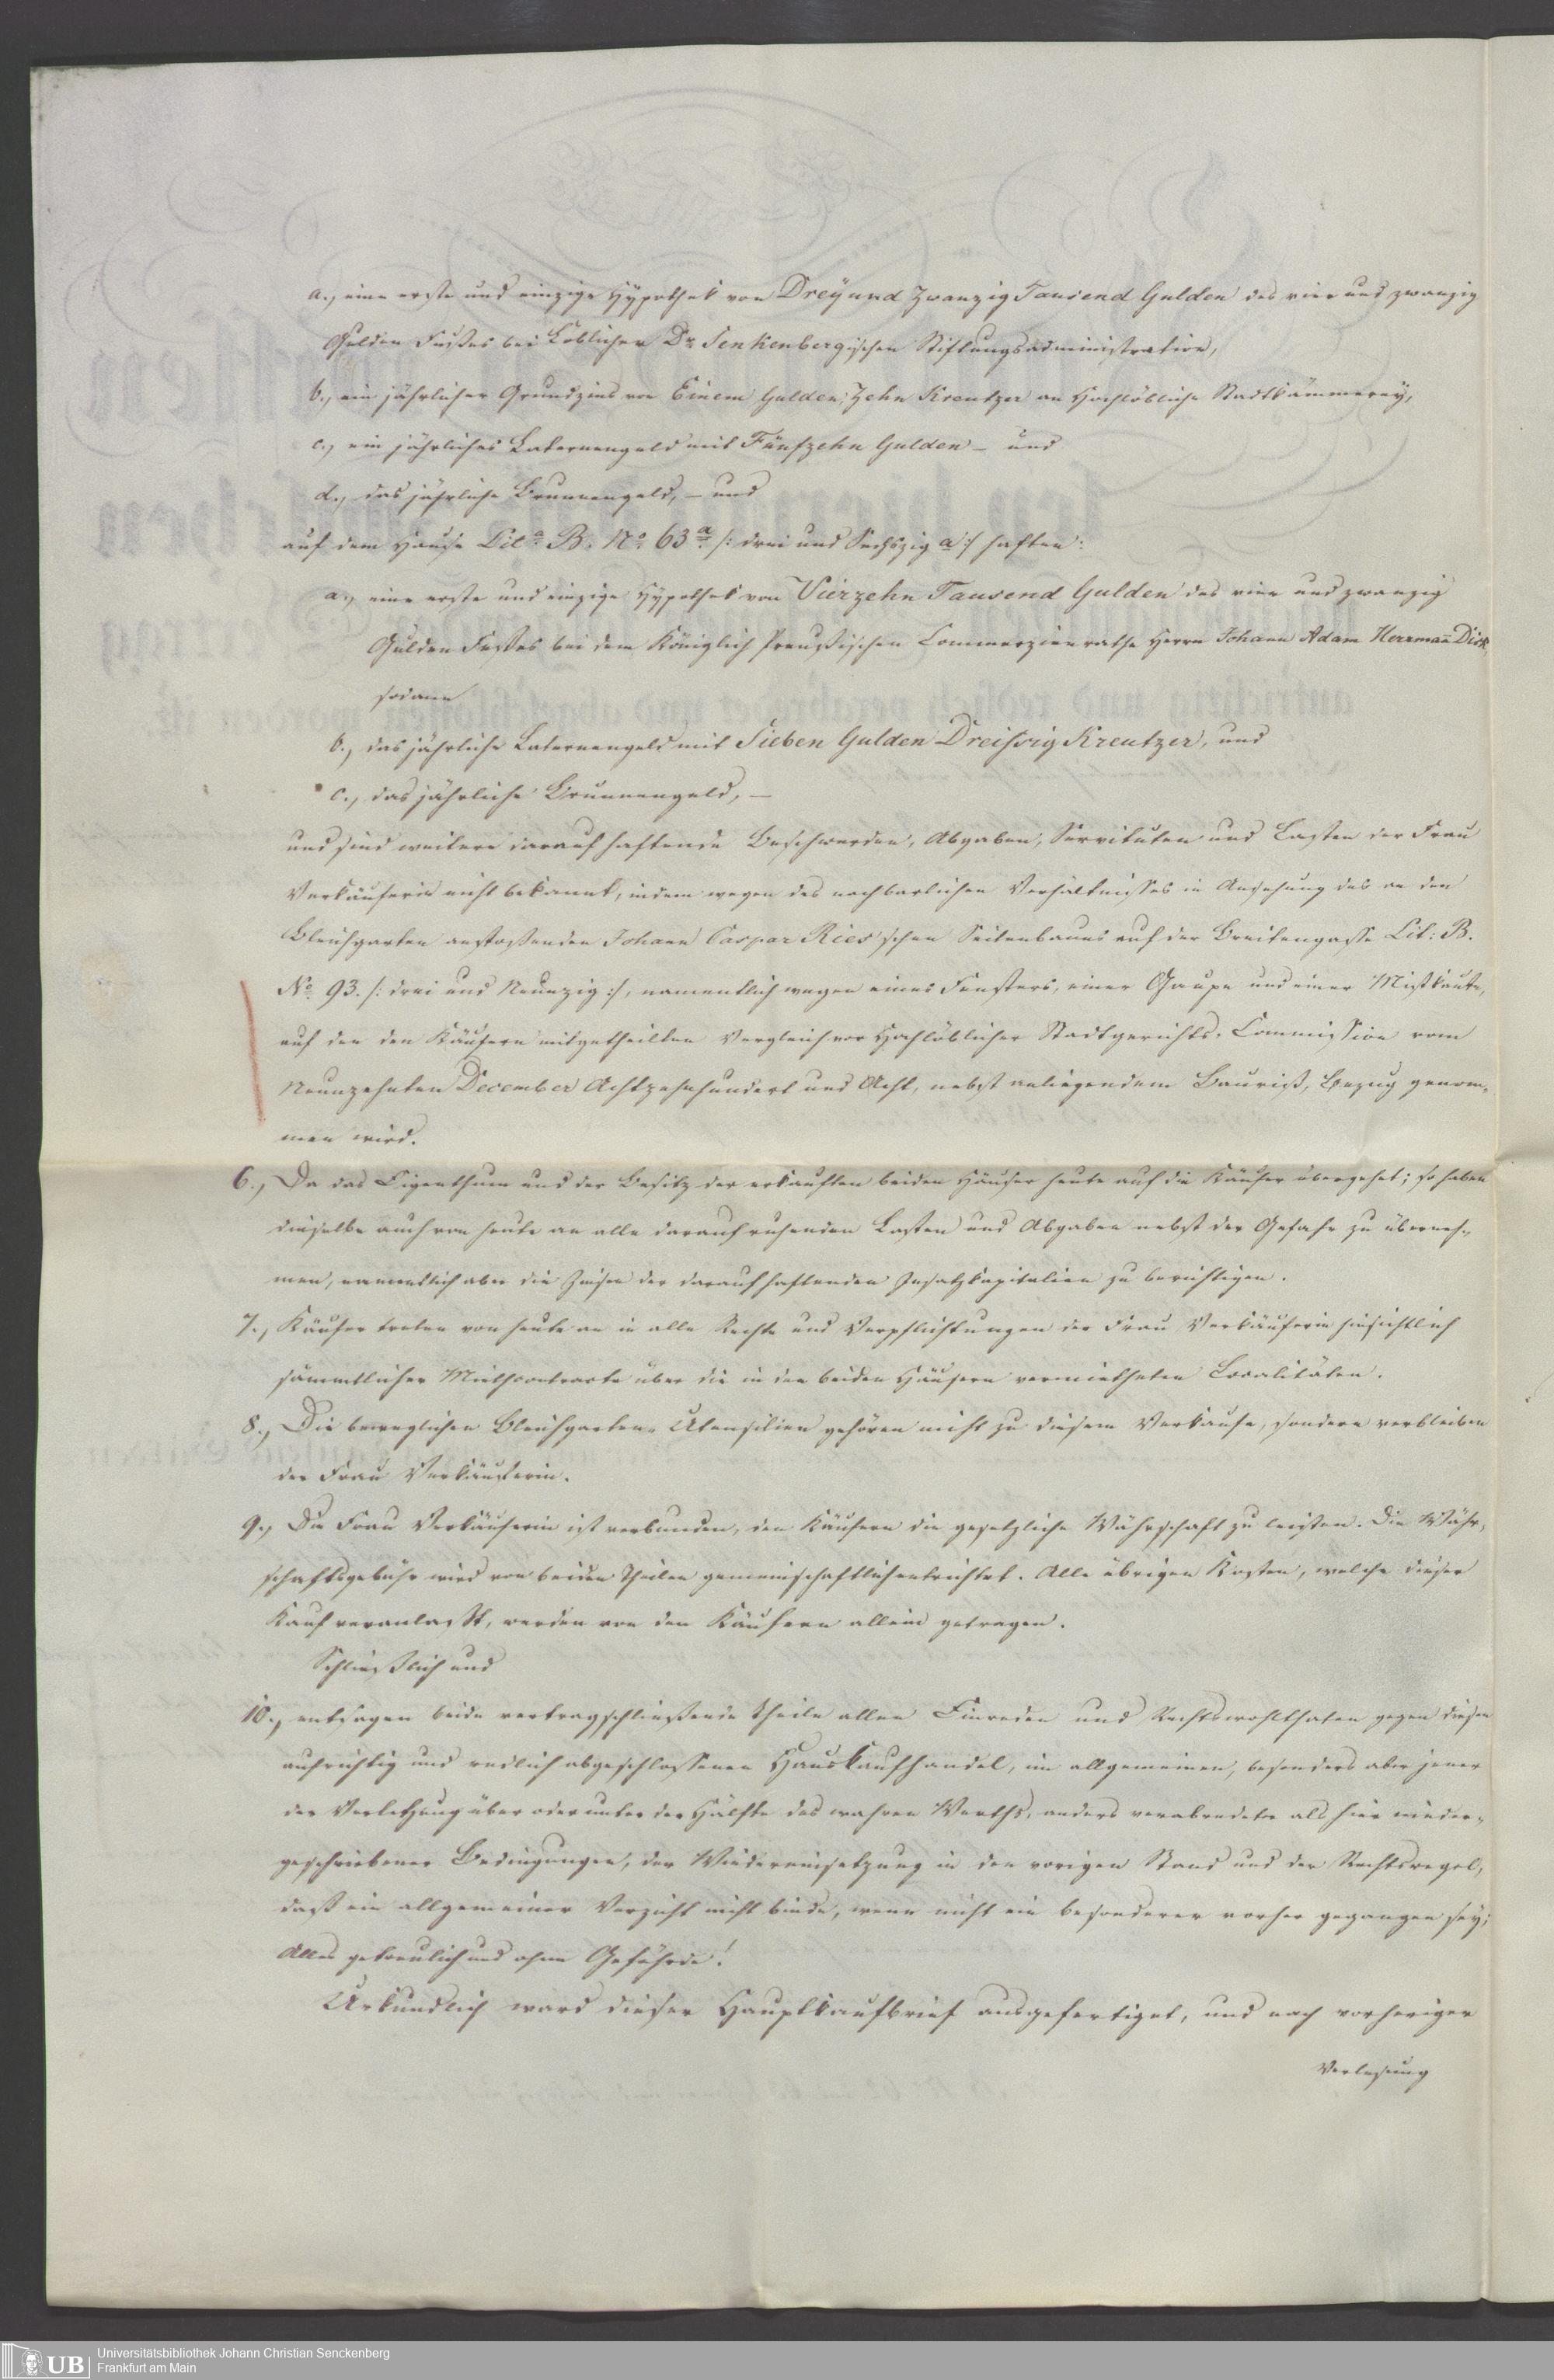 a., eine erste und einzige Hypothek von Dreÿund Zwanzig Tausend Gulden des vier und zwanzig
Gulden Fußes bei Löblicher Dr. Senkenbergischen Stiftungsadministration,
b., ein jährlicher Grundzins von Einem Gulden, Zehn Kreutzer an Hochlöbliche Stadtkämmerey,
c., ein jährliches Laternengeld mit Fünfzehn Gulden – und
d., das jährliche Brunnengeld, – und
auf dem Hause Lit.a B. No. 63a /: drei und Sechszig a :/ haften:
a., eine erste und einzige Hypothek von Vierzehn Tausend Gulden des vier und zwanzig
Gulden Fußes bei dem Königlich Preußischen Commerzienrathe Herrn Johann Adam Herrmann Dick,
sodann
b., das jährliche Laternengeld mit Sieben Gulden Dreissig Kreutzer, und
c., das jährliche Brunnengeld, –
und sind weitere darauf haftende Beschwerden, Abgaben, Servituten und Lasten der Frau
Verkäuferin nicht bekannt, indem wegen des nachbarlichen Verhältnisses in Ansehung des an den
Bleichgarten anstoßenden Johann Caspar Ries'schen Seitenbaues auf der Breitengasse Lit: B.
No. 93. /: drei und Neunzig :/, namentlich wegen eines Fensters, einer Gaupe und einer Mistkaute,
auf den den Käufern mitgetheilten Vergleich vor Hochlöblicher Stadtgerichts-Commission vom
Neunzehnten December Achtzehnhundert und Acht, nebst anliegendem Bauriß, Bezug genom-
men wird.
6., Da das Eigenthum und der Besitz der erkauften beiden Häuser heute auf die Käufer übergehet; so haben
dieselbe auch von heute an alle darauf ruhenden Lasten und Abgaben nebst der Gefahr zu überneh-
men, namentlich aber die Zinsen der darauf haftenden Insatzkapitalien zu berichtigen.
7., Käufer treten von heute an in alle Rechte und Verpflichtungen der Frau Verkäuferin hinsichtlich
sämmtlicher Miethcontracte über die in den beiden Häusern vermietheten Localitäten.
8., Die beweglichen Bleichgarten-Utensilien gehören nicht zu diesem Verkaufe, sondern verbleiben
der Frau Verkäuferin.
9., Die Frau Verkäuferin ist verbunden, den Käufern die gesetzliche Währschaft zu leisten. Die Währ-
schaftsgebühr wird von beiden Theilen gemeinschaftlich entrichtet. Alle übrigen Kosten, welche dieser
Kauf veranlaßt, werden von den Käufern allein getragen.
Schließlich und
10., entsagen beide vertragschließende Theile allen Einreden und Rechtswohlthaten gegen diesen
aufrichtig und redlich abgeschlossenen Hauskaufhandel, im allgemeinen, besonders aber jener
der Verletzung über oder unter der Hälfte des wahren Werths, anders verabredeter als hier nieder-
geschriebener Bedingungen, der Wiedereinsetzung in den vorigen Stand und der Rechtsregel,
daß ein allgemeiner Verzicht nicht binde, wenn nicht ein besonderer vorher gegangen sey;
Alles getreulich und ohne Gefährde!
Urkundlich ward dieser Hauptkaufbrief ausgefertiget, und nach vorheriger
Verlesung
UB Universitätsbibliothek Johann Christian Senckenberg
Frankfurt am Main